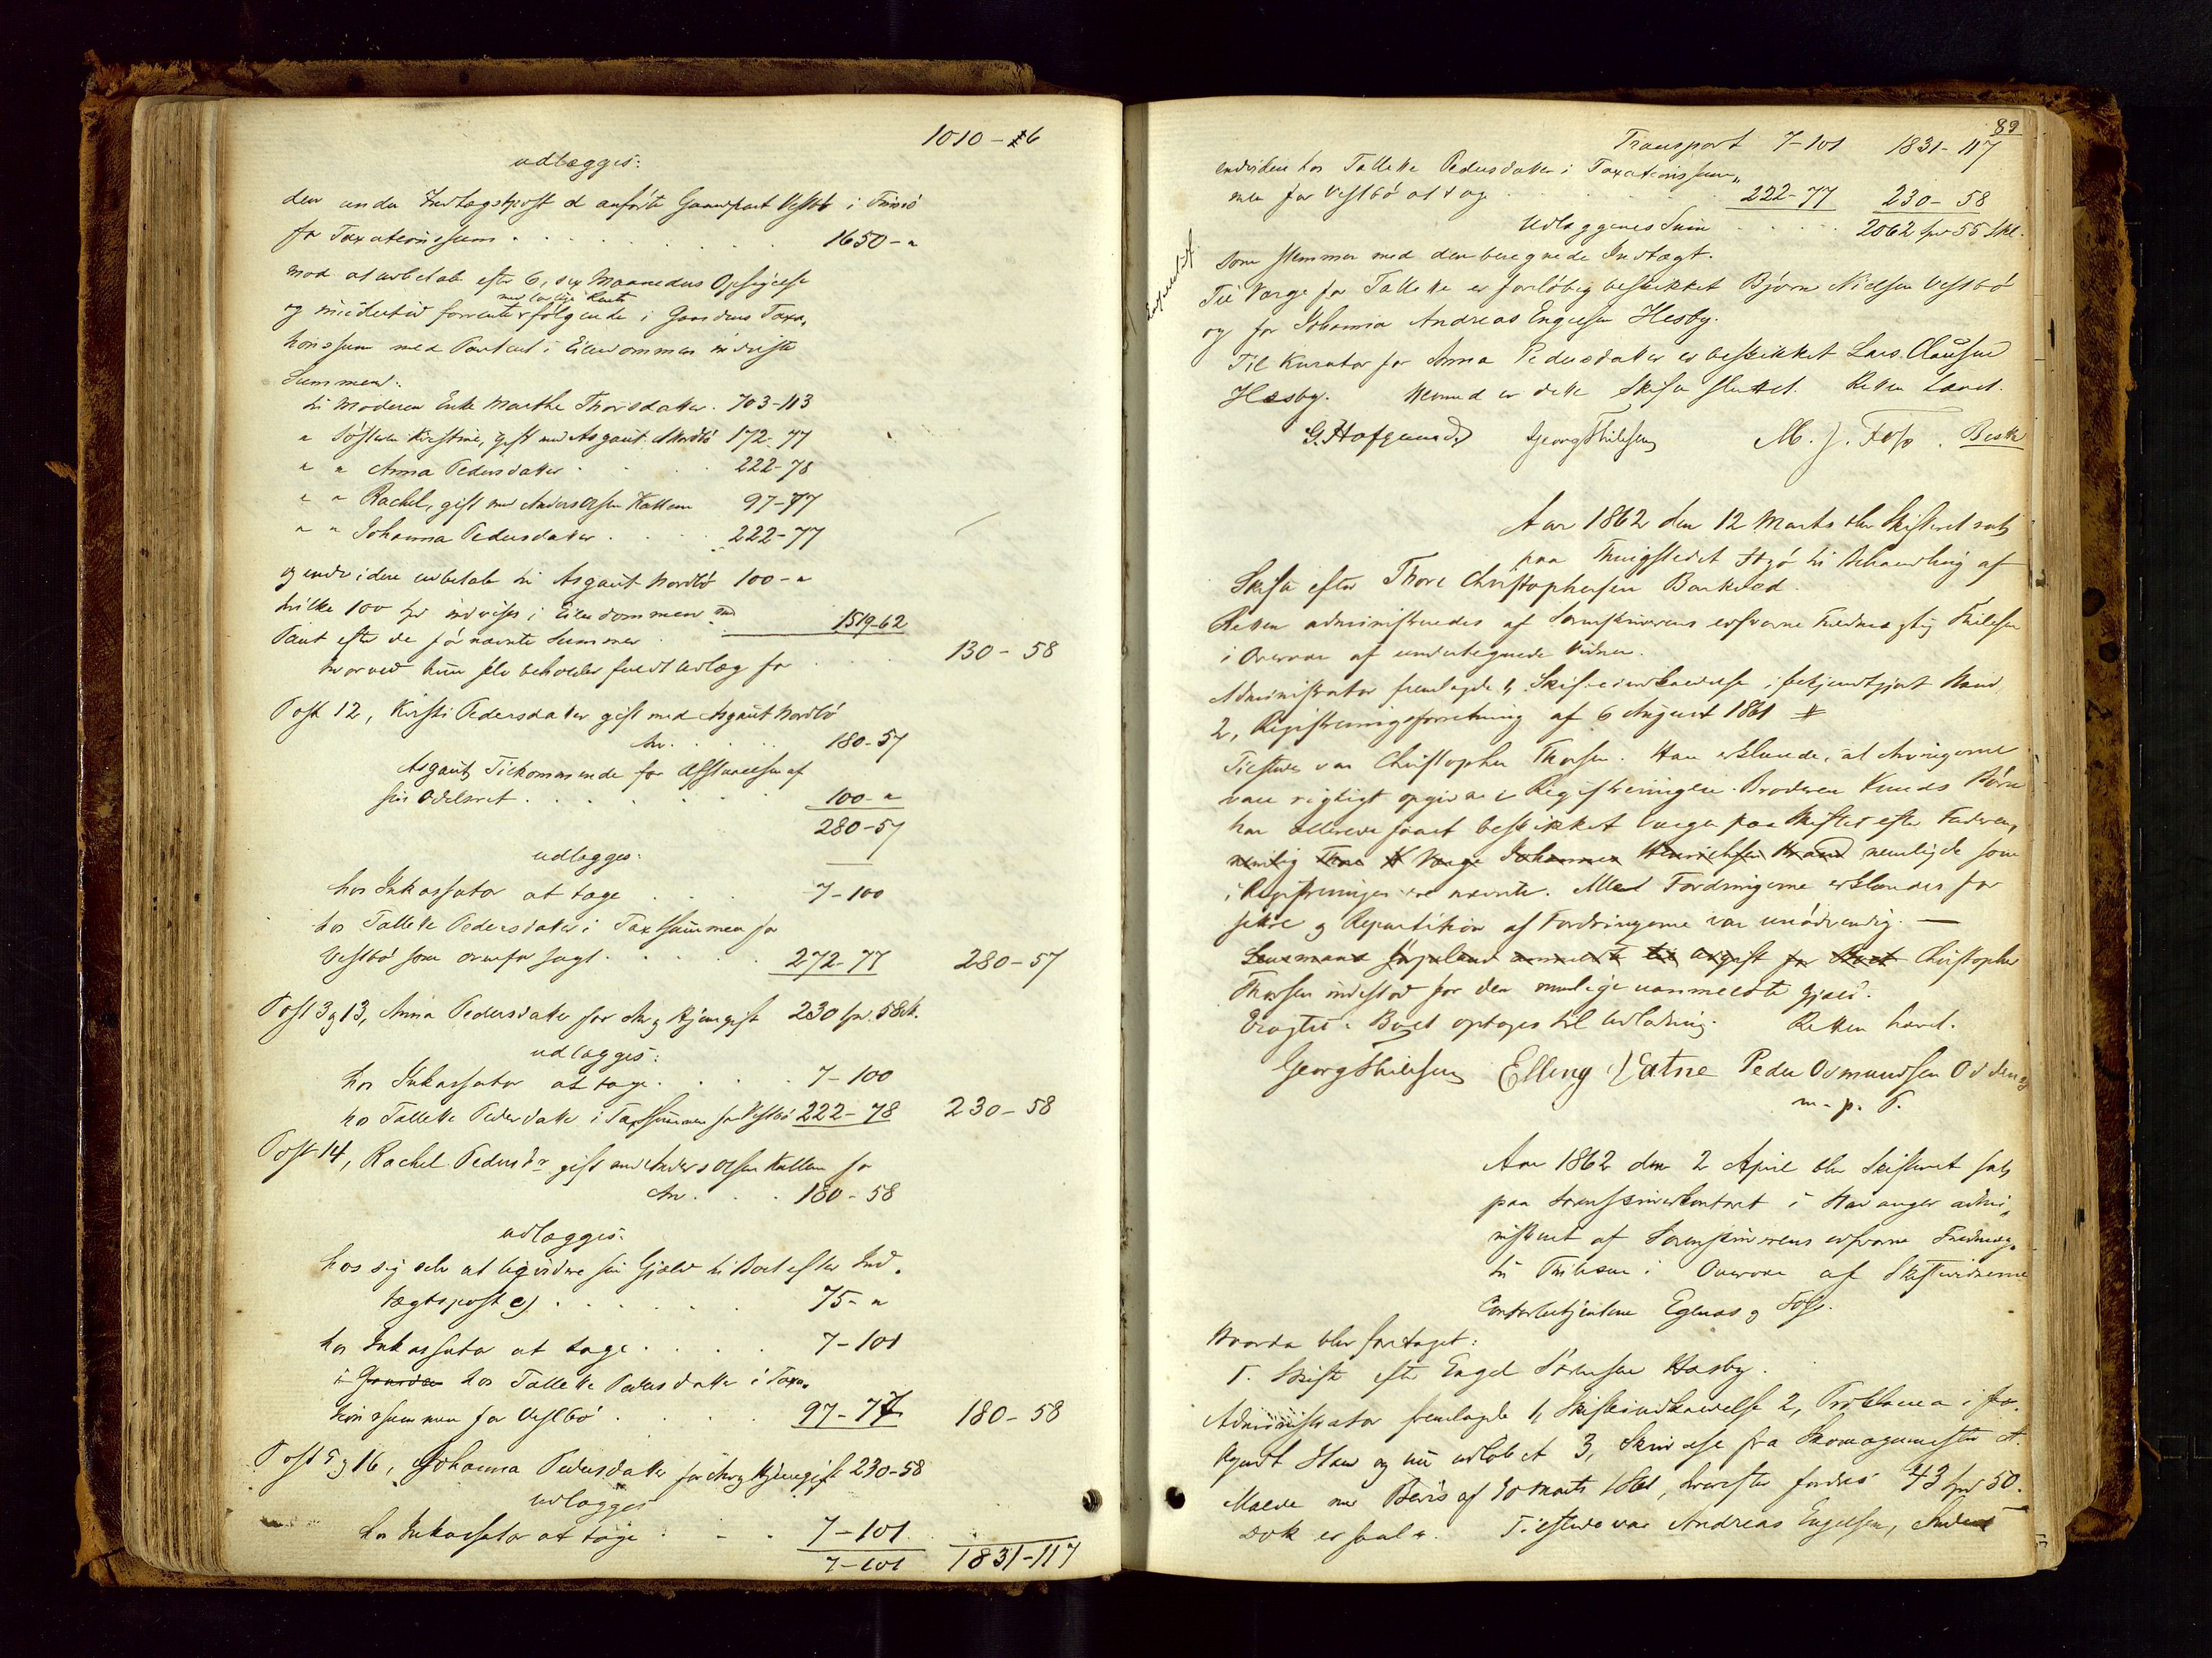 1010-16
udlægges:
den under Indtægtspost d anførte Gaardpart Vestbø i Finnø
for Taxationssum . . . 1650-"
mod at udbetale efter 6, sex Maaneders Opsigelse
med lovlige Rente
og imidlertid forrente følgende i Gaardens Taxa„
tionssum med Panteret i Eiendommen indviste
Summer:
til Moderen Enke Marthe Thorsdatter . 703-113
" Søsteren Kirstine, gift med Asgaut Nordbø 172-77
" " Anna Pedersdatter . . 222-78
" " Rachel, gift med Anders Olsen 97-77
" " Johanna Pedersdatter . . . 222-77
og endvidere udbetale til Asgaut Nordbø 100-"
hvilke 100 Spd indvises i Eiendommen med
Pant efter de før nævnte Summer . . 1519-62
hvorved hun selv beholder fuldt Udlæg for . . . 130-58
Post 12, Kirsti Pedersdatter gift med Asgaut Nordbø
Arv . . . 180-57
Asgauts Tilkommende for Afstaaelsen af
sin Odelsret . . . 100-"
280-57
udlægges:
hos Inkassator at tage . . . 7-100
hos Tallette Pedersdatter i Taxtsummen for
Vestbø som ovenfor sagt . . . 272-77 280-57
Post 3 og 13, Anna Pedersdatter for Arv og Hjemgift 230 Spd. 58 sk.
udlægges:
hos Inkassator at tage . . . 7-100
hos Tallette Pedersdatter i Taxtsummen for Vestbø 222-78 230-58
Post 14, Rachel Pedersdr gift med Anders Olsen for
Arv . . . 180-58
udlægges:
hos sig selv at liqvidere sin Gjæld til Boet efter Ind„
tægtspost e) . . . 75-"
hos Inkassator at tage . . . 7-101
i Gaarden hos Tallette Pedersdatter i Taxa„
tionssummen for Vestbø . . . 97-77 180-58
Post 5 og 16, Johanna Pedersdatter for Arv og Hjemgift 230-58
udlægges
hos Inkassator at tage . . . 7-101
7-101 1831-117
89
Transport 7-101 1831-117
endvidere hos Tallette Pedersdatter i Taxationssum„
men for Vestbø at tage . . . 222-77 230-58
Udlæggenes Sum . . . 2062 Spd 55 Skl.
som stemmer med den beregnede Indtægt.
Til Værge for Tallette er foreløbig beskikket Bjørn Nielsen Vestbø
og for Johanna Andreas Engelsen Hesby.
Til Kurator for Anna Pedersdatter er beskikket Lars Clausen
Hæsby. Hermed er dette Skifte sluttet. Retten hævet.
Georg Thilesen M. J. Foss. Besk
Aar 1862 den 12 Marts blev Skifteret sat
paa Thingstedet til Behandling af
Skifte efter Thore Christophersen Barkved.
Retten administreredes af Sorenskriverens edsvorne Fuldmægtig Thilesen
i Overvær af undertegnede Vidner.
Administrator fremlagde 1, Skifteindkaldelse i forkyndt Stand
2, Registreringsforretning af 6 August 1861
Tilstede var Christopher Thorsen. Han erklærede, at Arvingerne
vare rigtigt opgivne i Registreringen. Broderen Knuds Børn
har allerede faaet beskikket Værger paa Skiftet efter Faderen,
nemlig Værge Johannes Henrichsen nemlig de som
i Registreringen ere nævnte. Alle Fordringerne erklæredes for
sikre og Repartition af Fordringerne var unødvendig. —
Lensmand anmeldt til for Boet Christopher
Thorsen indestod for den mulige uanmeldte Gjæld.
Boet optages til Udlodning. Retten hævet.
Georg Thilesen Elling Vatne Peder Osmundsen
m. p. P.
Aar 1862 den 2 April blev Skifteret sat
paa Sorenskriverkontoret i Stavanger admi„
nistreret af Sorenskriverens edsvorne Fuldmæg„
tig Thilesen i Overvær af Skiftevidnerne
Contorbetjentene Egenæs og Foss.
Hvorda blev foretaget:
1. Skifte efter Engel Sørensen Hæsby.
Administrator fremlagde 1, Skifteindkaldelse 2, Proklama i for„
kyndt Stand og nu udløbet 3, Skrivelse fra Skomagermester
med Bevis af 20 Marts 1861, hvorefter fordres 43 Spd 50.
Tilstede var Andreas Engelsen,